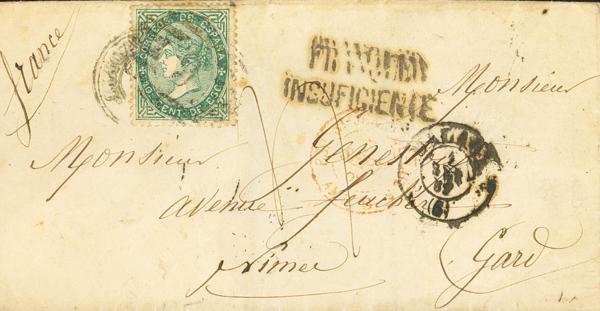 france
CORREOS DE ESPAÑA
10 CENT. DE ESCO
FRANQUEO
INSUFICIENTE
Monsieur
Monsieur
avenue Feuchères
Nimes
Gard